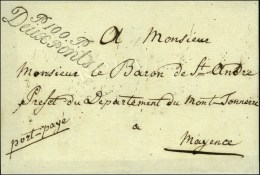 P.100.P.
Deux-Ponts
A Monsieur
Monsieur le Baron de St. André
Prefet du Département du Mont-Tonnerre
à
port-payé
Mayence